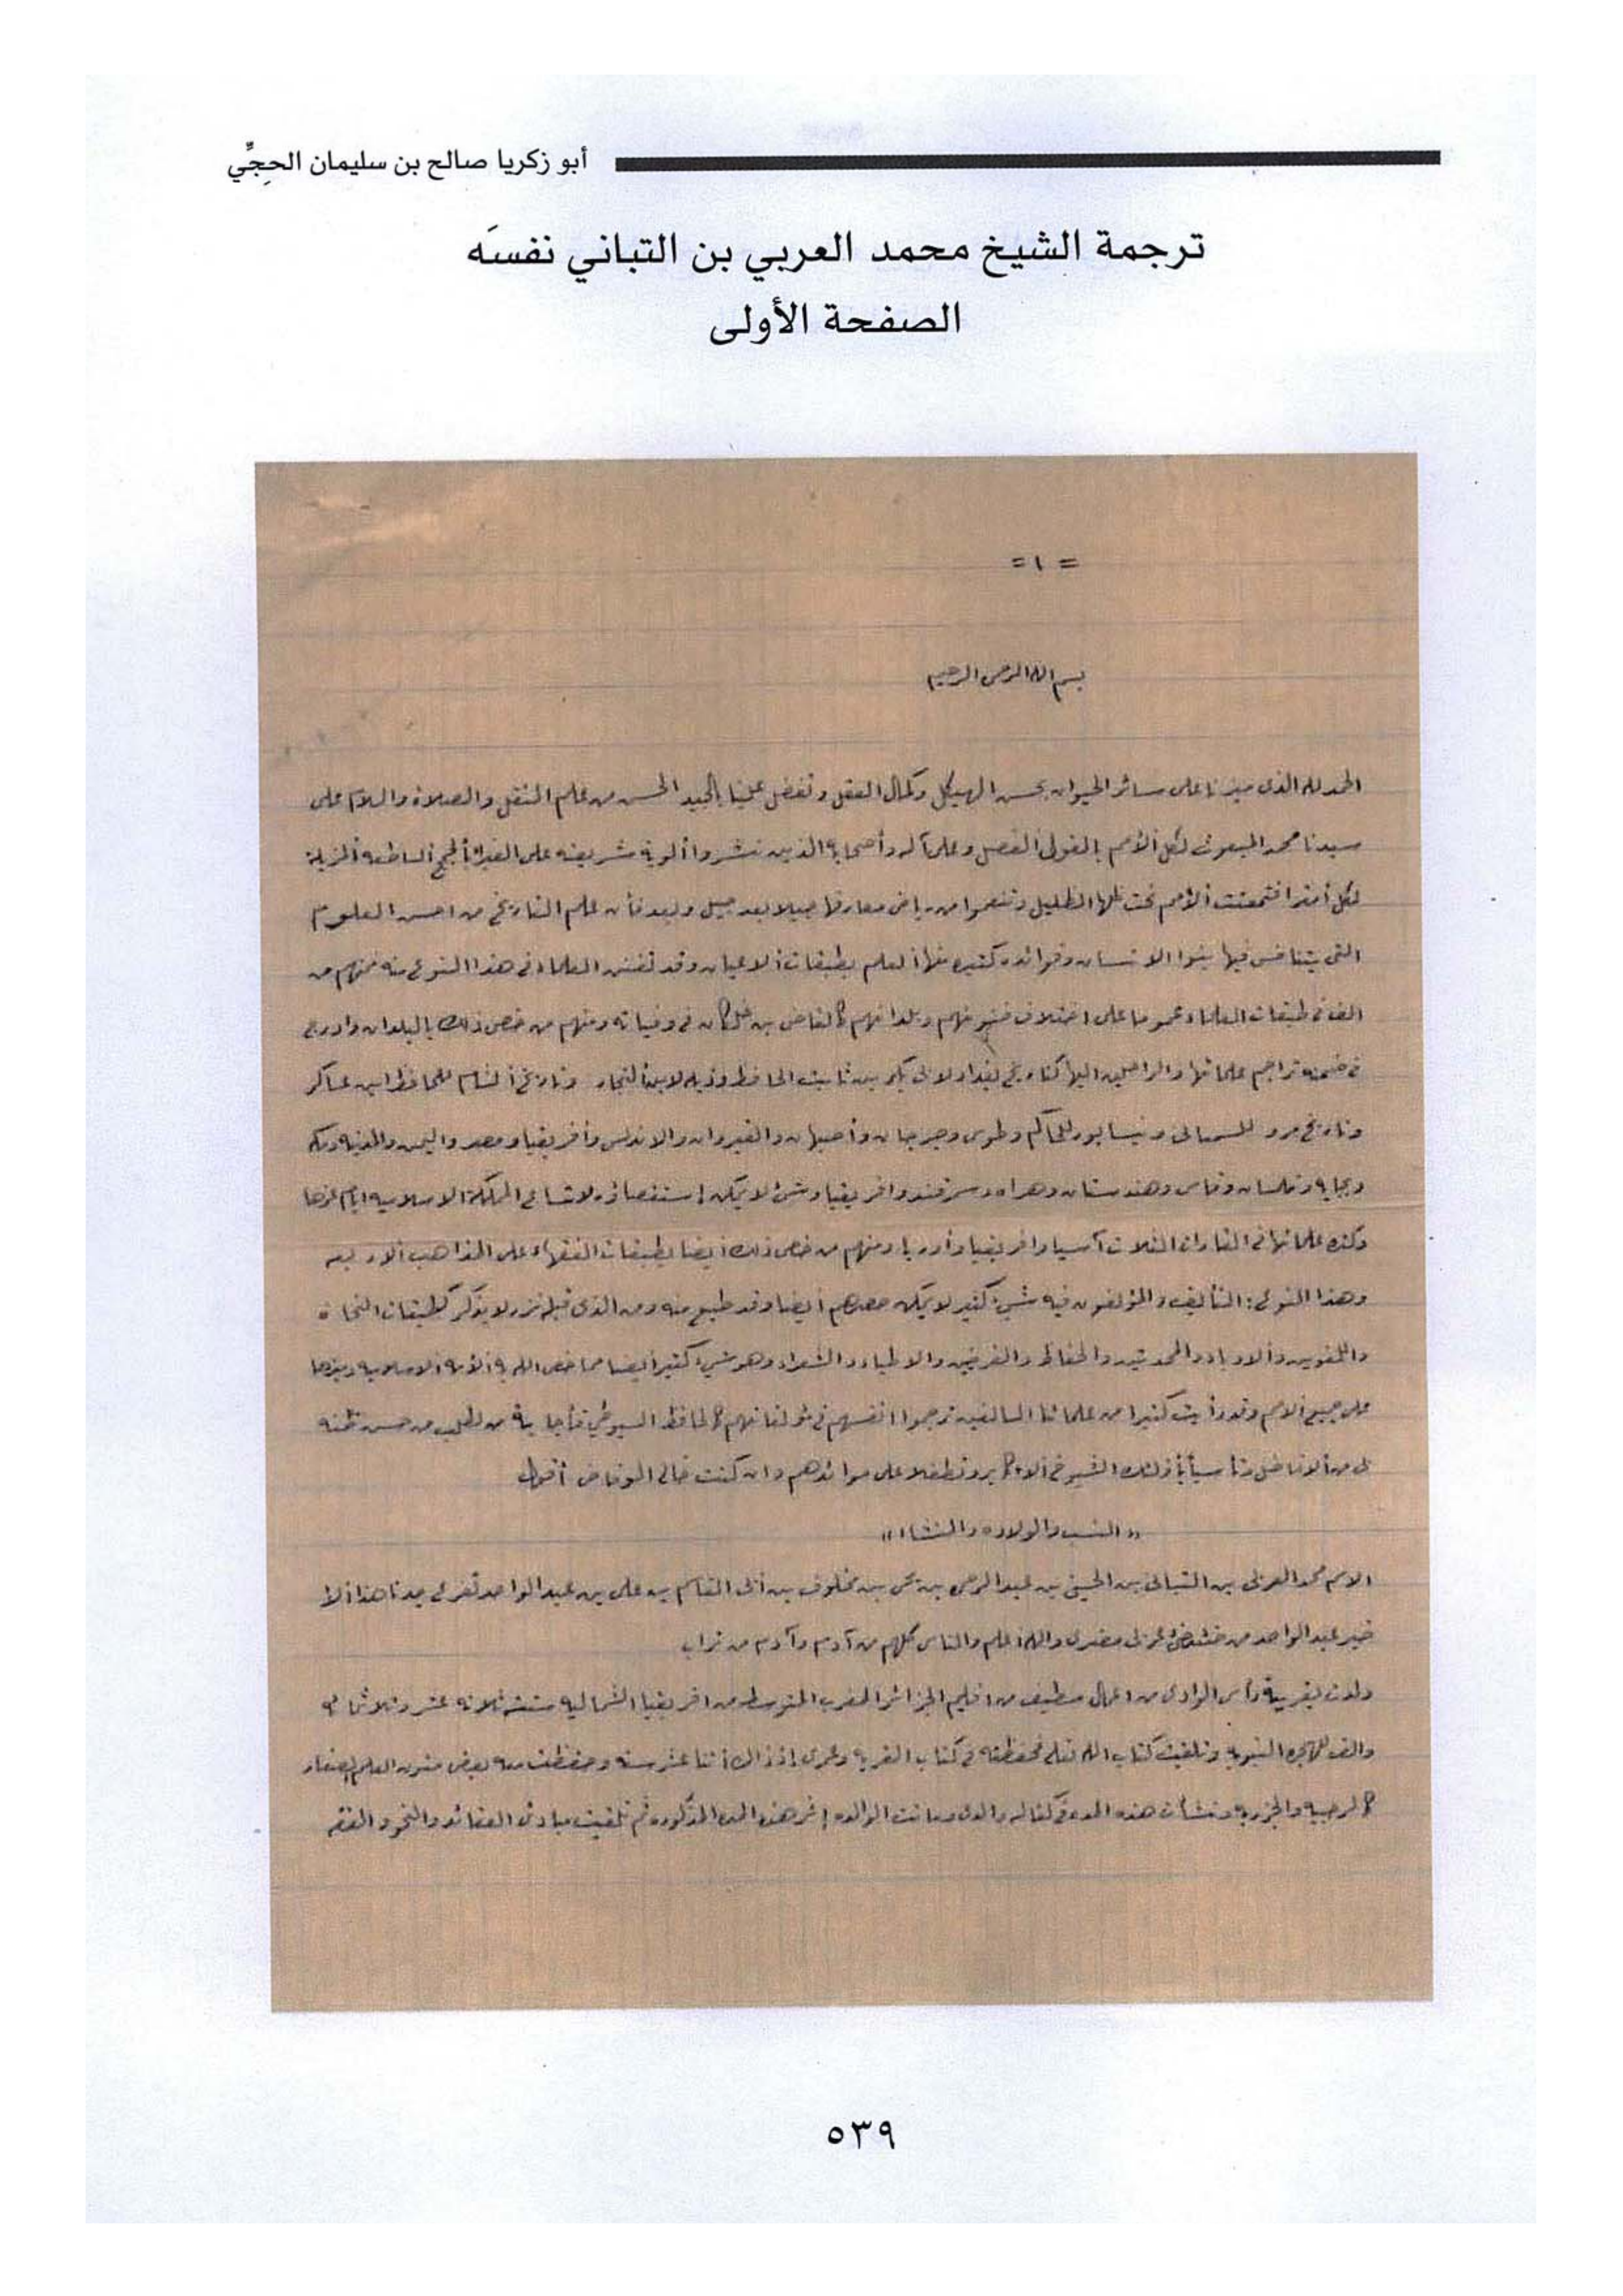 أبو زكريا صالح بن سليمان الحِجِّي
ترجمة الشيخ محمد العربي بن التباني نفسَه
الصفحة الأولى
= ١ =
بسم الله الرحمن الرحيم
الحمد لله الذى ميزنا على سائر الحيوان بحسن الهيكل وكمال العقل وتفضل علينا بالجيد الحسن من علم النقل والصلاة والسلام على
سيدنا محمد المبعوث لكل الأمم بالقول الفصل وعلى آله وأصحابه الذين نشروا ألوية شريعته على الغبراء بالحجج الساطعة المزيلة
لكل أمتراء فتمتعت الأمم تحت ظلها الظليل وتنعموا من رياض معارفها جيلا بعد جيل وبعد فأن علم التاريخ من احسن العلوم
التى يتنافس فيها بنوا الانسان وفوائده كثيره منها العلم بطبقات الاعيان وقد تفنن العلماء فى هذا النوع منه فمنهم من
الف فى طبقات العلماء عموما على اختلاف فنونهم وبلدانهم كالقاضى بن خلكان فى وفياته ومنهم من خص ذلك بالبلدان وادرج
فى ضمنه تراجم علمائها والراحلين اليها كتاريخ بغداد لابى بكر بن ثابت الحافظ وذيله لابن النجار وتاريخ الشام للحافظ ابن عساكر
وتاريخ مرو للسمعانى ونيسابور للحاكم وطوس وجرجان وأصبهان والقيروان والاندلس وأفريقيا ومصر واليمن والمدينه ومكه
وبجايه وتلمسان وفاس وهندستان وهراه وسمرقند وافريقيا وشئ لا يمكن إستقصاؤه لاتساع المملكة الاسلاميه ايام عزها
وكثره علمائها فى القارات الثلاث آسيا وافريقيا وأوربا ومنهم من خص ذلك أيضا بطبقات الفقهاء على المذاهب الاربعه
وهذا النوع: التأليف والمؤلفون فيه شئ كثير لا يمكن حصرهم أيضا وقد طبع منه ومن الذى قبله نزر لا يذكر كطبقات النحاة
واللغويين والادباء والمحدثين والحفاظ والقرضيين والاطباء والشعراء وهو شئ كثير أيضا مما خص الله به الأمة الاسلاميه وميزها
على جميع الامم وقد رأيت كثيرا من علمائنا السالفين ترجموا انفسهم فى مؤلفاتهم كالحافظ السيوطي فأجابة من لطلب من حسن ظنه
بى من الافاضل وتأسيأ بأولئك الشيوخ الاكابر وتطفلا على موائدهم وان كنت خالى الوفاض أقول
« النسب والولاده والنشاة »
الاسم محمد العربى بن التبانى بن الحسين بن عبد الرحمن بن يحى بن مخلوف بن أبى القاسم بن على بن عبد الواحد تفرع جدنا هذا الا
خير عبد الواحد من عربى مضرى والله أعلم والناس كلهم من آدم وآدم من تراب
ولدت بقرية رأس الوادى من اعمال سطيف من اقليم الجزائر المغرب المتوسط من افريقيا الشماليه سنة ثلاثه عشر وثلاثمائه
والف للهجره النبوية وتلقيت كتاب الله تعلى فحفظته فى كتاب القريه وعمرى إذ ذاك أثنا عشر سنه وحفظت معه بعض متون العلم الصغار
كالرحبيه والجزريه ونشأت هذه المده فى كفاله والدى وماتت الوالده إثر هذه المده المذكوره ثم تلقيت مبادئ العقائد والنحو والفقه
٥٣٩